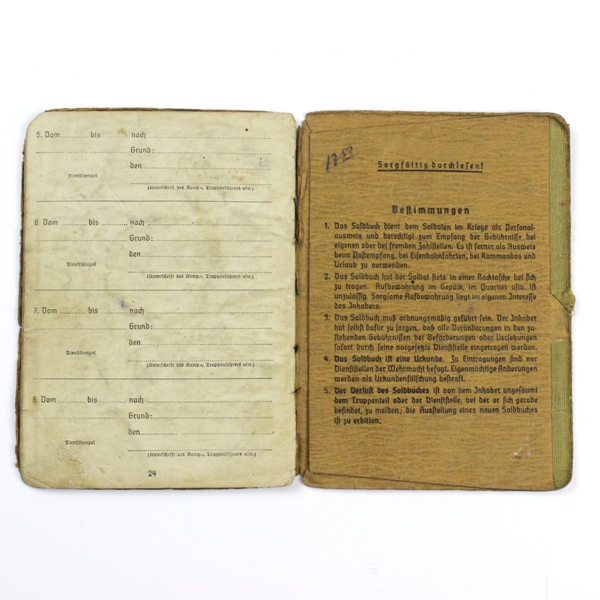 5. Vom bis nach
Grund:
den
Dienststempel
(Unterschrift des Komp.-, Truppenführers usw.)
6. Vom bis nach
Grund:
den
Dienststempel
(Unterschrift des Komp.-, Truppenführers usw.)
7. Vom bis nach
Grund:
den
Dienststempel
(Unterschrift des Komp.-, Truppenführers usw.)
8. Vom bis nach
Grund:
den
Dienststempel
(Unterschrift des Komp.-, Truppenführers usw.)
24
Sorgfältig durchlesen!
Bestimmungen
1. Das Soldbuch dient dem Soldaten im Kriege als Personal-
ausweis und berechtigt zum Empfang der Gebührnisse bei
eigenen oder bei fremden Zahlstellen. Es ist ferner als Ausweis
beim Postempfang, bei Eisenbahnfahrten, bei Kommandos und
Urlaub zu verwenden.
2. Das Soldbuch hat der Soldat stets in einer Rocktasche bei sich
zu tragen. Aufbewahrung im Gepäck, im Quartier usw. ist
unzulässig. Sorgsame Aufbewahrung liegt im eigenen Interesse
des Inhabers.
3. Das Soldbuch muß ordnungsmäßig geführt sein. Der Inhaber
hat selbst dafür zu sorgen, daß alle Veränderungen in den zu-
stehenden Gebührnissen bei Beförderungen oder Versetzungen
sofort durch seine vorgesetzte Dienststelle eingetragen werden.
4. Das Soldbuch ist eine Urkunde. Zu Eintragungen sind nur
Dienststellen der Wehrmacht befugt. Eigenmächtige Änderungen
werden als Urkundenfälschung bestraft.
5. Der Verlust des Soldbuches ist von dem Inhaber ungesäumt
dem Truppenteil oder der Dienststelle, bei der er sich gerade
befindet, zu melden; die Ausstellung eines neuen Soldbuches
ist zu erbitten.